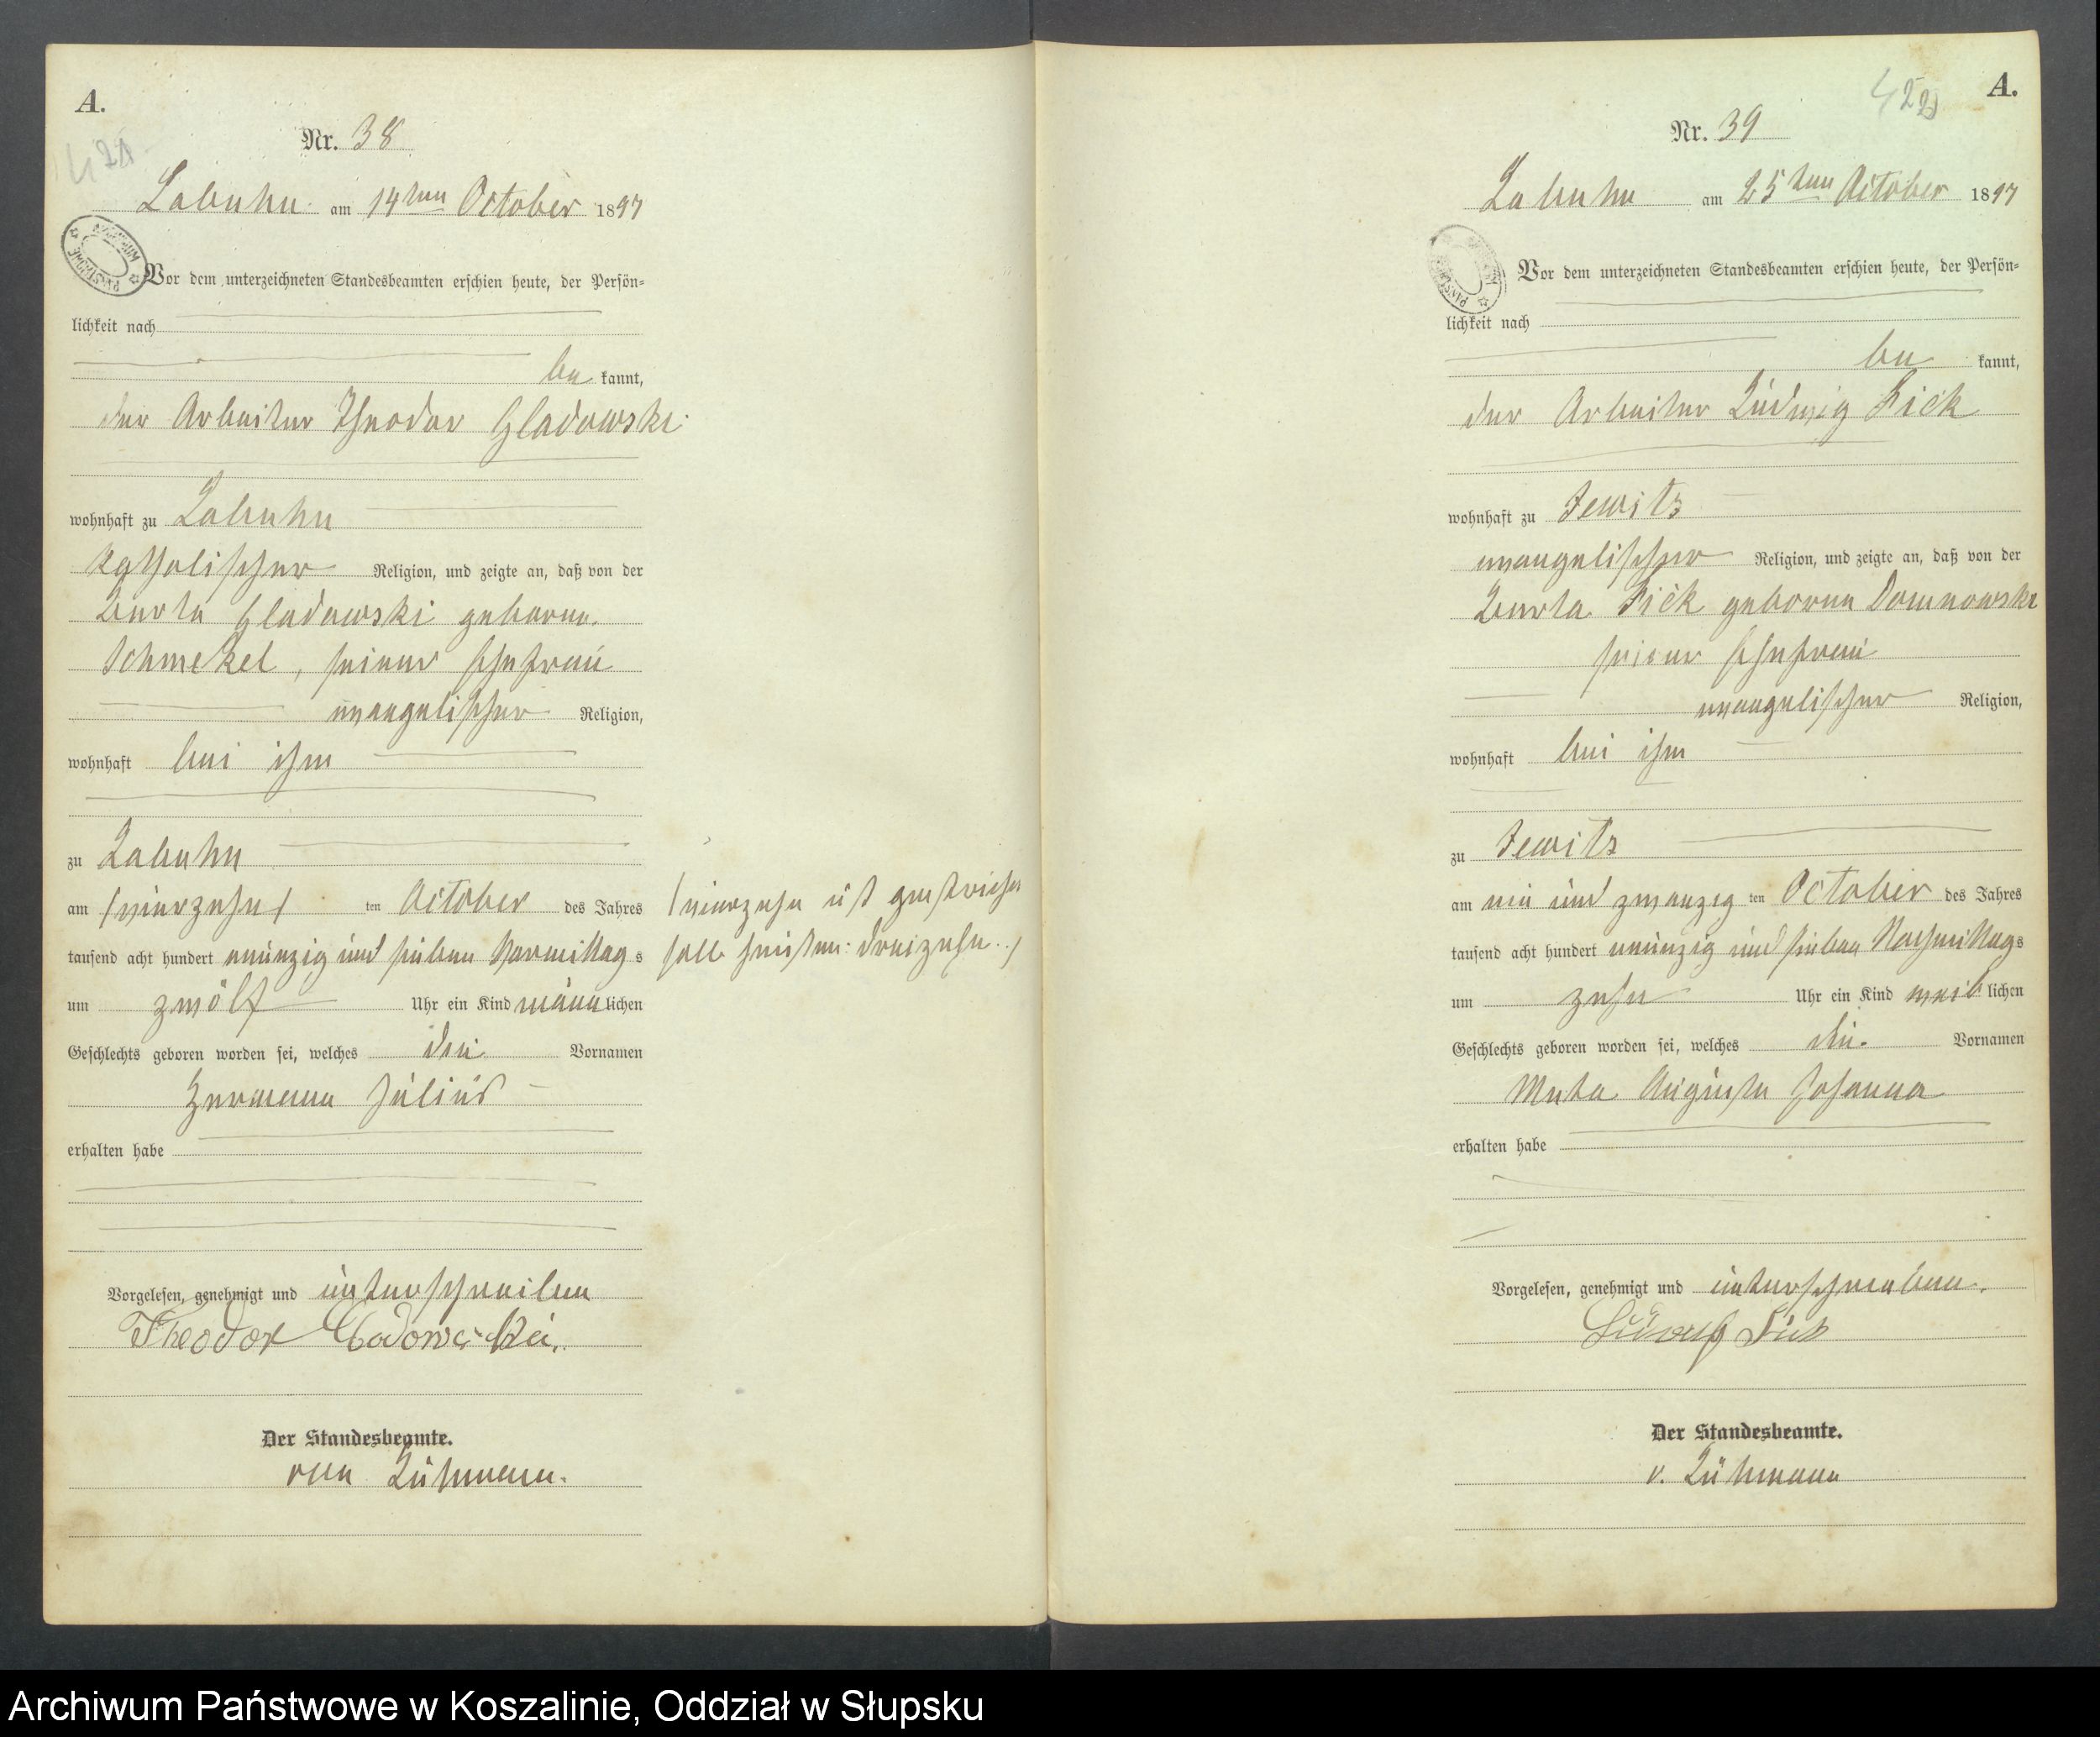 A.
421
Nr. 38
Labuhn am 14ten October 1897
Vor dem unterzeichneten Standesbeamten erschien heute, der Persön-
lichkeit nach
be kannt,
der Arbeiter Theodor Gladowski
wohnhaft zu Labuhn
katholischer Religion, und zeigte an, daß von der
Berta Gladowski geborene
Schmekel, seiner Ehefrau
evangelischer Religion,
wohnhaft bei ihm
zu Labuhn
am (vierzehn) ten October des Jahres
tausend acht hundert neunzig und sieben Vormittag s
um zwölf Uhr ein Kind männ lichen
Geschlechts geboren worden sei, welches die Vornamen
Hermann Julius
erhalten habe
Vorgelesen, genehmigt und unterschreiben
Theodor Gladowski
Der Standesbeamte.
von Lühmann.
(vierzehn ist gestrichen
soll heißen: dreizehn..)
422
A.
Nr. 39
Labuhn am 25ten October 1897
Vor dem unterzeichneten Standesbeamten erschien heute, der Persön-
lichkeit nach
be kannt,
der Arbeiter Ludwig Fick
wohnhaft zu Jewitz
evangelischer Religion, und zeigte an, daß von der
Berta Fick geborene Domnowski
seiner Ehefrau
evangelischer Religion,
wohnhaft bei ihm
zu Jewitz
am ein und zwanzig ten October des Jahres
tausend acht hundert neunzig und sieben Nachmittag s
um zehn Uhr ein Kind weib lichen
Geschlechts geboren worden sei, welches die Vornamen
Meta Auguste Johanna
erhalten habe
Vorgelesen, genehmigt und unterschrieben.
Fick
Der Standesbeamte.
v. Lühmann
Archiwum Państwowe w Koszalinie, Oddział w Słupsku